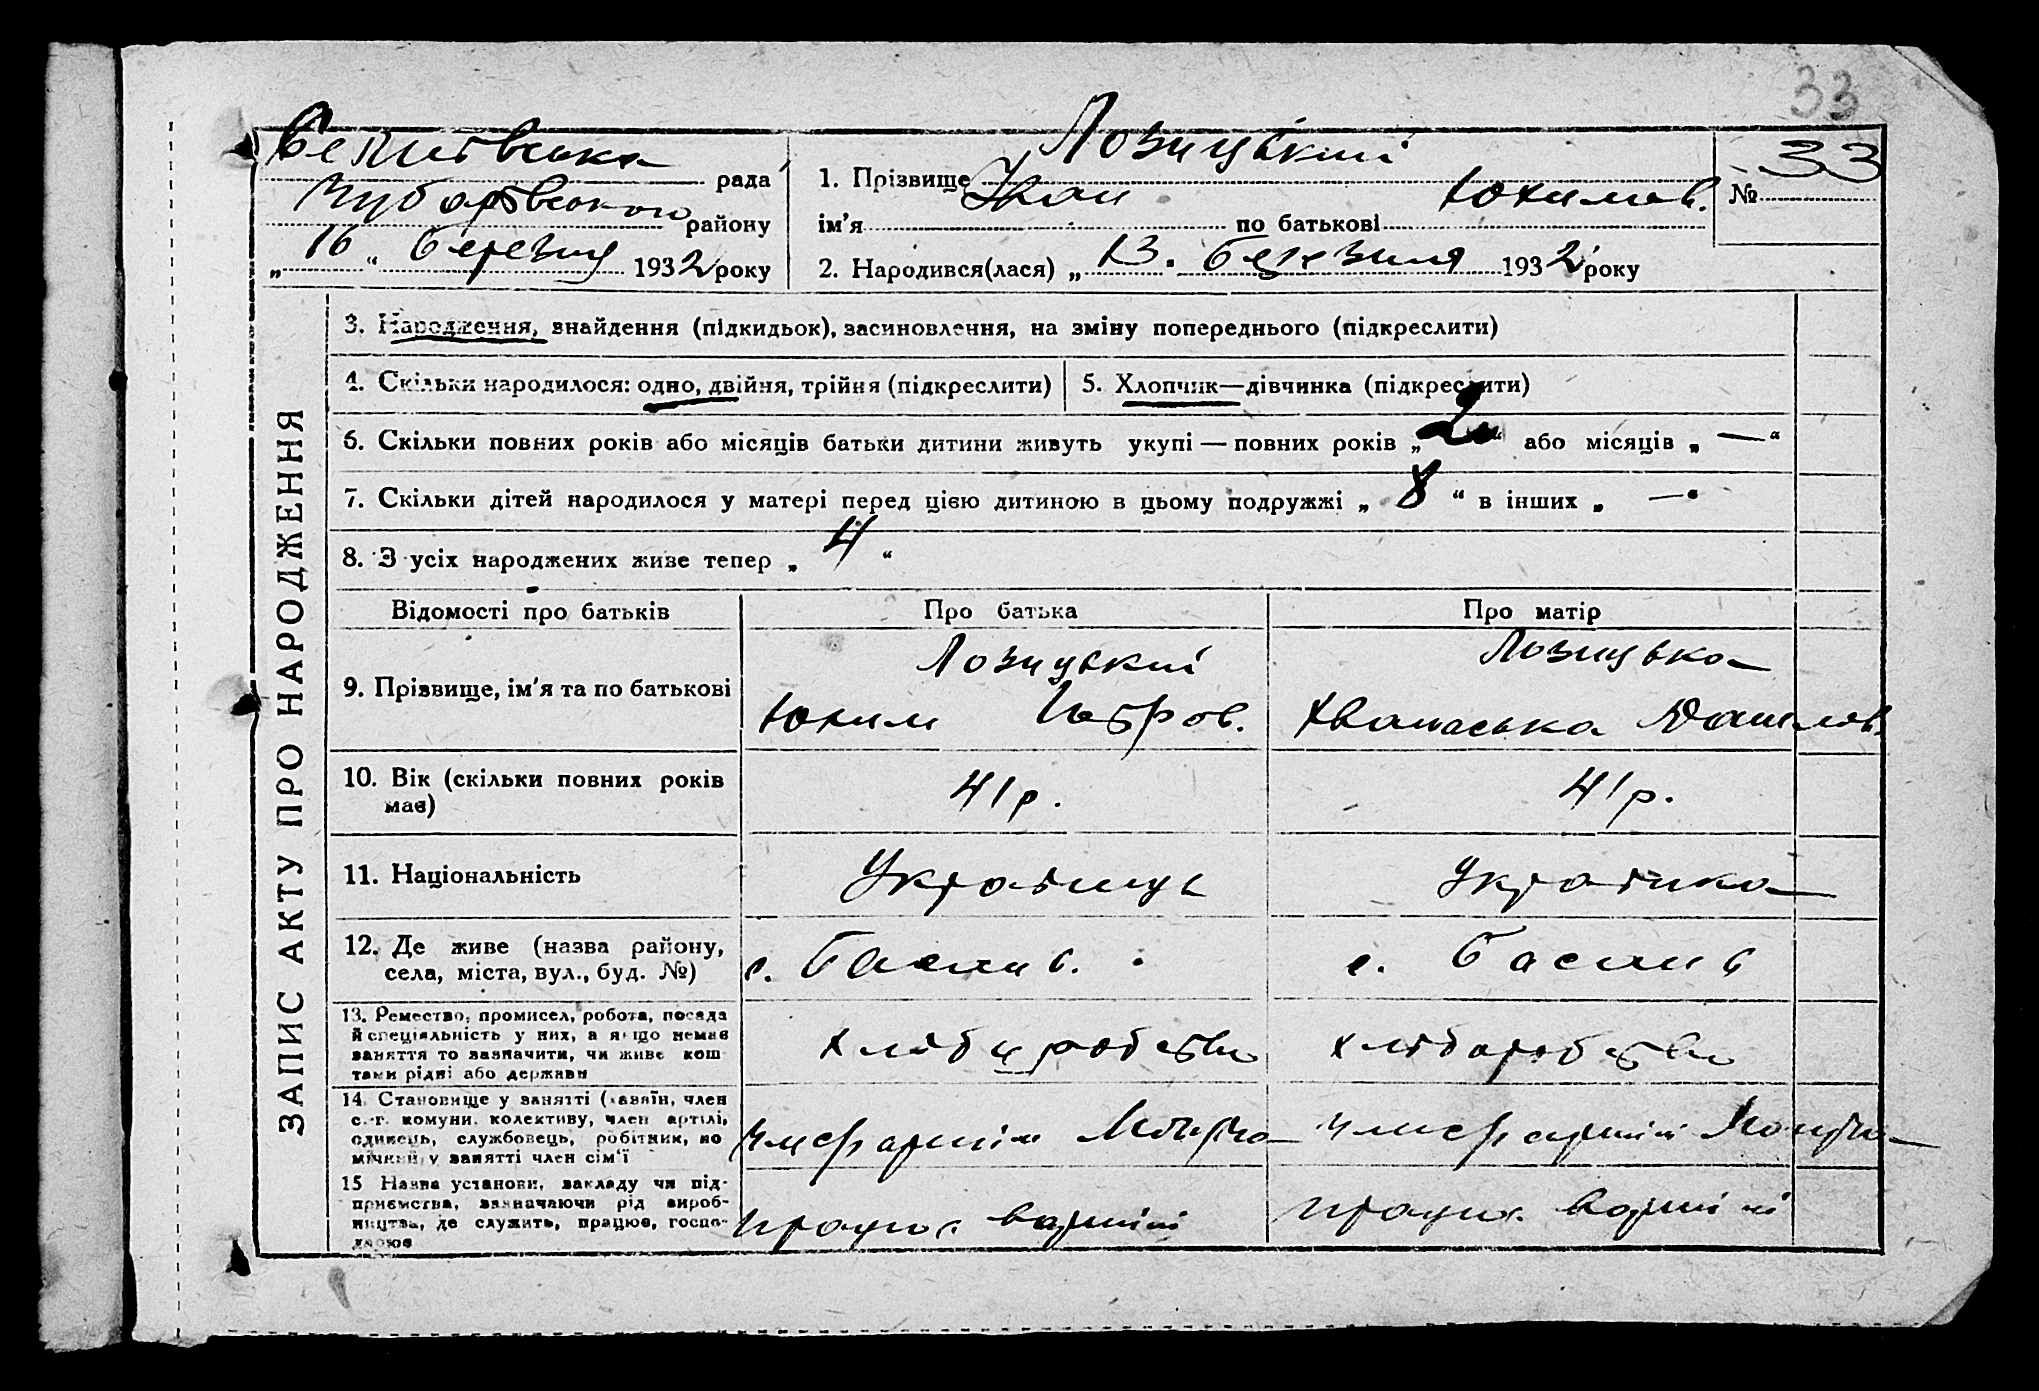 33
рада
району
„ 16 “ березня 1932 року
1. Прізвище Лозицький
ім’я Іван по батькові Юхимов.
2. Народився(лася) „ 13. березня 1932 року
№ 33
ЗАПИС АКТУ ПРО НАРОДЖЕННЯ
3. Народження, знайдення (підкидьок), засиновлення, на зміну попереднього (підкреслити)
4. Скільки народилося: одно, двійня, трійня (підкреслити)
5. Хлопчик—дівчинка (підкреслити)
6. Скільки повних років або місяців батьки дитини живуть укупі — повних років „ “ або місяців „ — “
7. Скільки дітей народилося у матері перед цією дитиною в цьому подружжі „ 8 “ в інших „ — “
8. З усіх народжених живе тепер „ 4 “
Відомості про батьків
Про батька
Про матір
9. Прізвище, ім’я та по батькові
Лозицький
Юхим Петров.
Лозицька
Данилов.
10. Вік (скільки повних років
має)
41 р.
41 р.
11. Національність
Українець
Українка
12. Де живе (назва району,
села, міста, вул., буд. №)
с. Баслив.
с. Баслив
13. Ремество, промисел, робота, посада
й спеціяльність у них, а якщо немає
заняття то зазначити, чи живе кош
тами рідні або держави
хлібороб
хлібороб
14. Становище у занятті (хазяїн, член
с.-г. комуни, колективу, член артілі,
одинець, службовець, робітник, по
мічний у занятті член сім’ї
член артілі
член артілі
15 Назва установи, закладу чи під-
приємства, зазначаючи рід вироб-
ництва, де служить, працює, госпо-
дарює
працює в артілі
працює в артілі